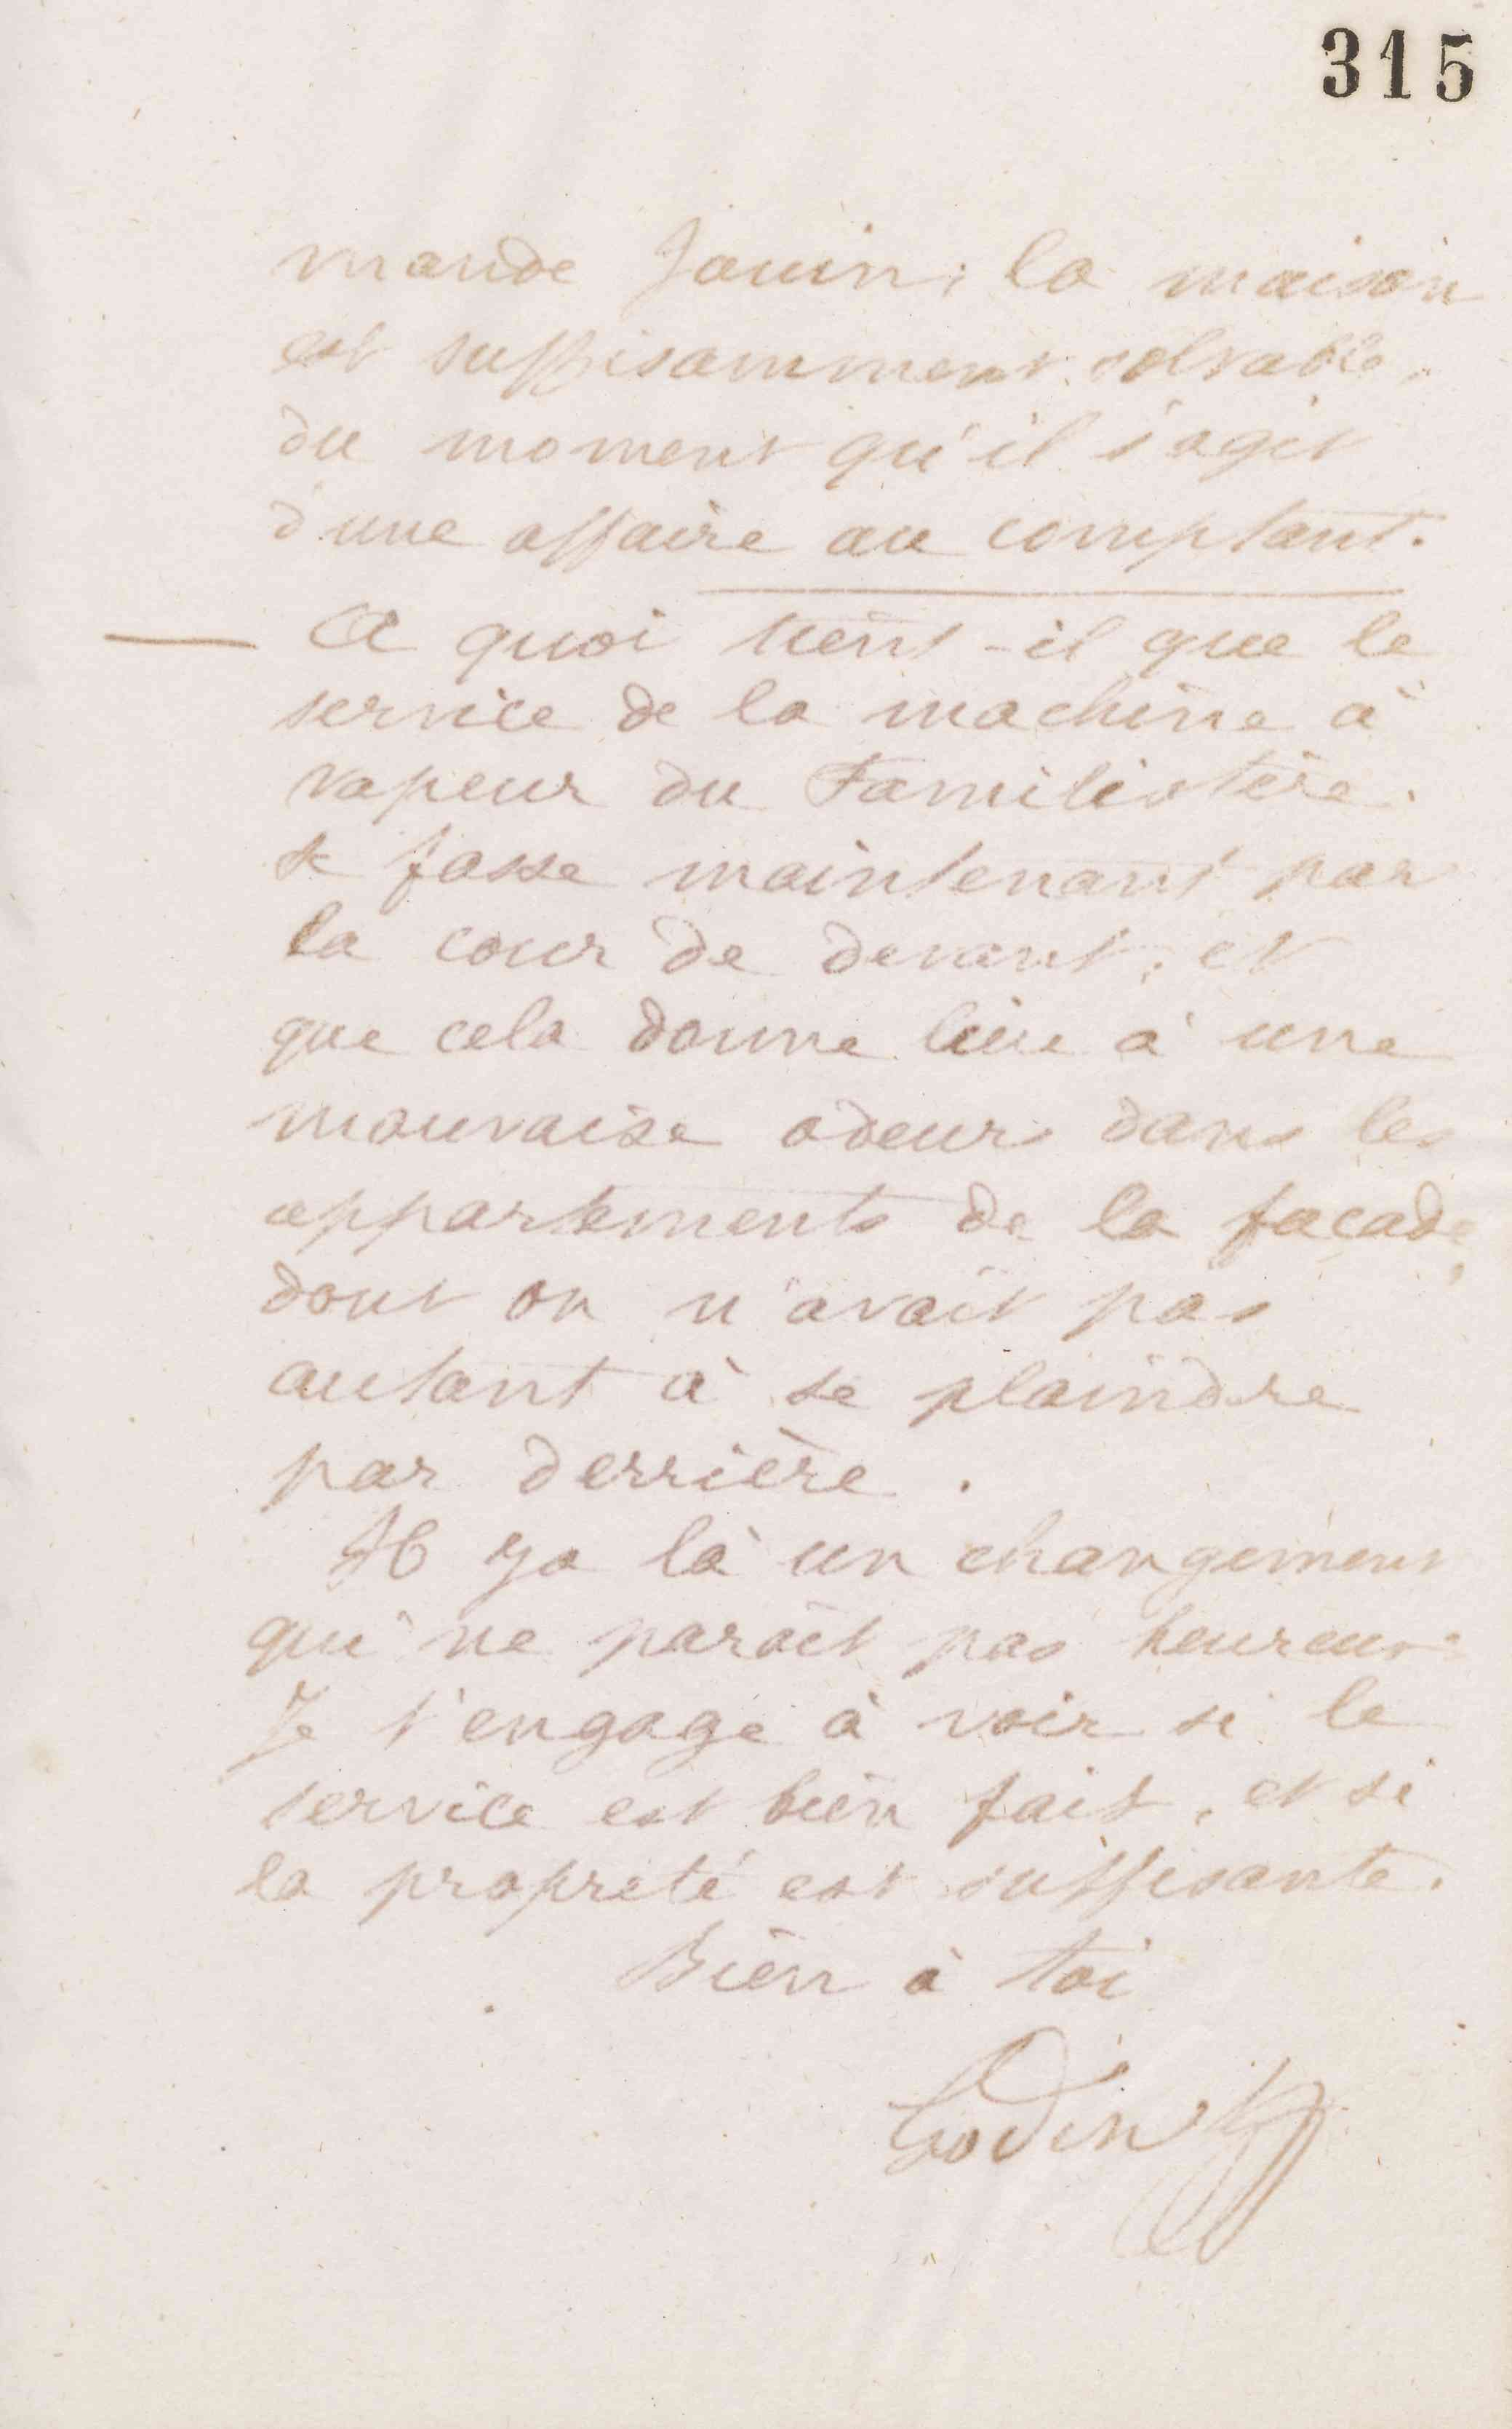 315
mande Jouin ; la maison
est suffisamment solvable,
du moment qu'il s'agit
d'une affaire au comptant.
— A quoi tient-il que le
service de la machine à
vapeur du Familistère
se fasse maintenant par
la cour de devant, et
que cela donne lieu à une
mauvaise odeur dans les
appartements de la façade,
dont on n'avait pas
autant à se plaindre
par derrière.
Il y a là un changement
qui ne paraît pas heureux.
Je t'engage à voir si le
service est bien fait, et si
la propreté est suffisante.
Bien à toi
Godin